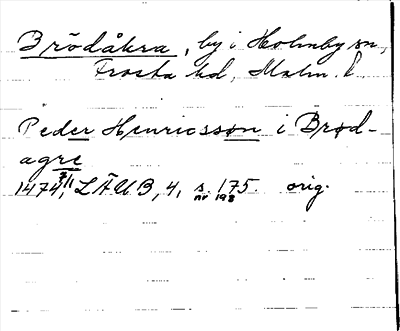 Brödåkra, by i Holmby sn,
Frosta hd, Malm. l.
Peder Henricsson i Brød-
agre
1474 7/11, LÄUB, 4, s. 175. orig.
nr 198